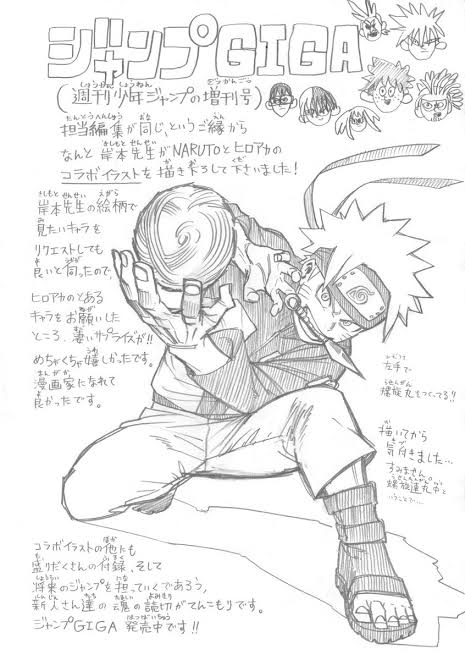 ジャンプGIGA
(週刊少年ジャンプの増刊号)
担当編集が同じ、というご縁から
なんと岸本先生がNARUTOとヒロアカの
コラボイラストを描き下ろして下さいました!
岸本先生の絵柄で
見たいキャラを
リクエストしても
良いと伺ったので、
ヒロアカのとある
キャラをお願いした
ところ、凄いサプライズが!!
めちゃくちゃ嬉しかったです。
漫画家になれて
良かったです。
左手で
螺旋丸をつくってる!!
描いてから
気付きました…
すみません。
螺旋連丸中と
いうことで…
コラボイラストの他にも
盛りだくさんの付録、そして
将来のジャンプを担っていくであろう、
新人さん達の魂の読切がてんこもりです。
ジャンプGIGA 発売中です!!